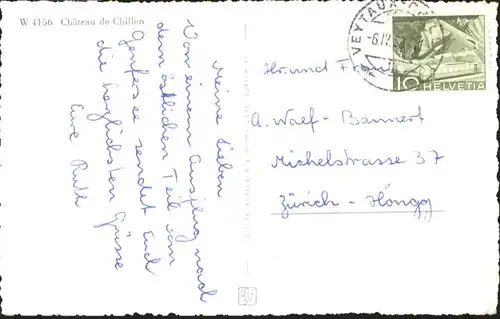 W 4156 Château de Chillon
Meine Lieben
Von einem Ausflug nach
dem östlichen Teil vom
Genfersee sendet Euch
die herzlichsten Grüsse
Eure Ruth
VEYTAUX
-6.IV.
10
HELVETIA
Hr. und Frau
A. Waef-Bannert
Michelstrasse 37
Zürich-Höngg